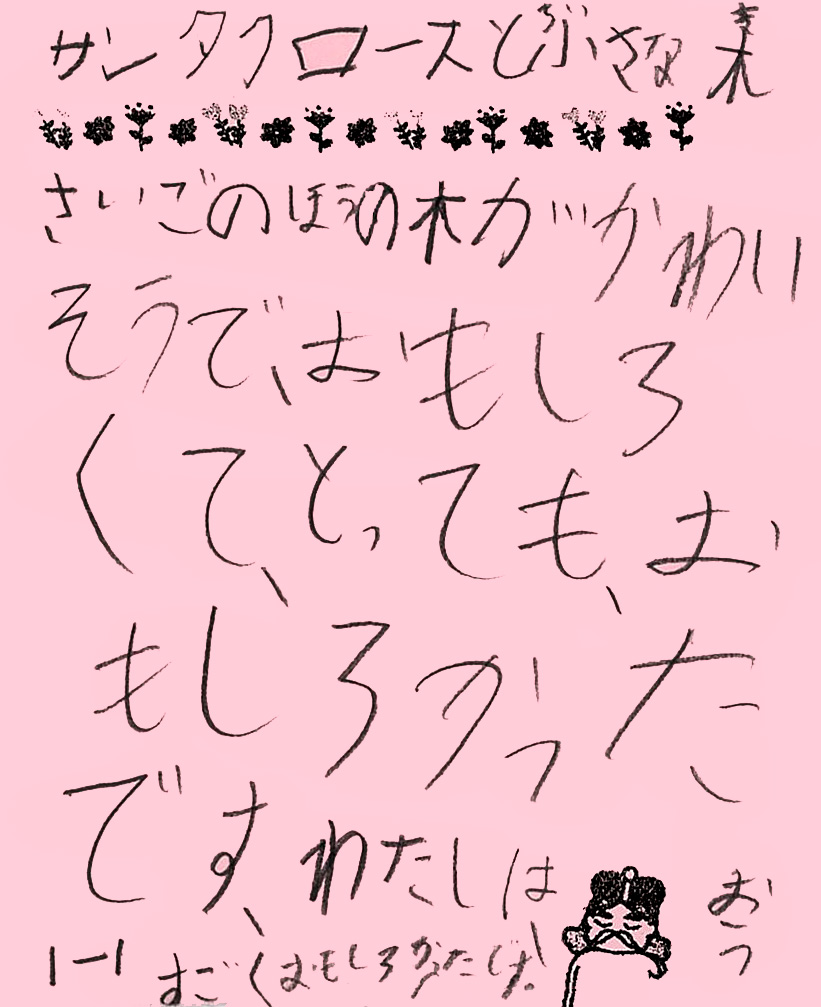 サンタクロースとちいさな木
さいごのほうの木ガがかわい
そうで、おもしろ
くて、とっても、お
もしろかった
です、わたしは
1-1 すごくおもしろかったです!
おう